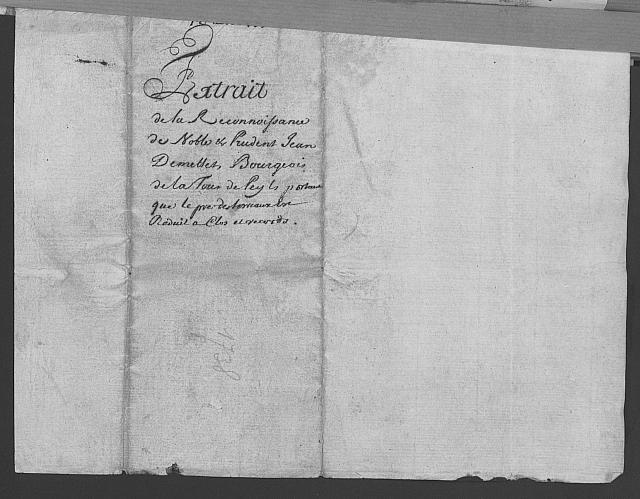 Extrait
de la Reconnoissance
de Noble & Prudent Jean
Demellet, Bourgeois
de la Tour de Peyls portant
que le pre des
Reduit a Clos et records.
1738